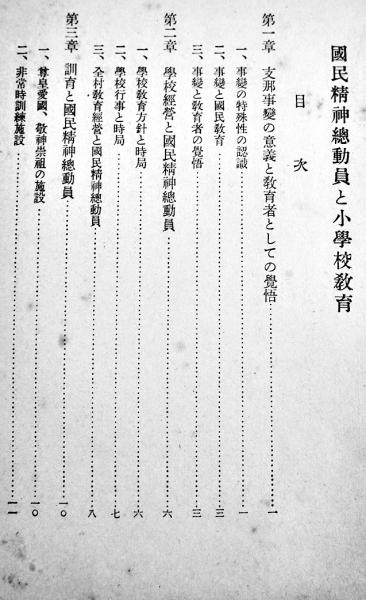 國民精神總動員と小學校教育
目次
第一章 支那事變の意義と教育者としての覺悟…………一
一、事變の特殊性の認識…………一
二、事變と國民教育…………三
三、事變と教育者の覺悟…………三
第二章 學校經營と國民精神總動員…………六
一、學校教育方針と時局…………六
二、學校行事と時局…………七
三、全村教育經營と國民精神總動員…………八
第三章 訓育と國民精神總動員…………一〇
一、尊皇愛國、敬神崇祖の施設…………一〇
二、非常時訓練施設…………一一